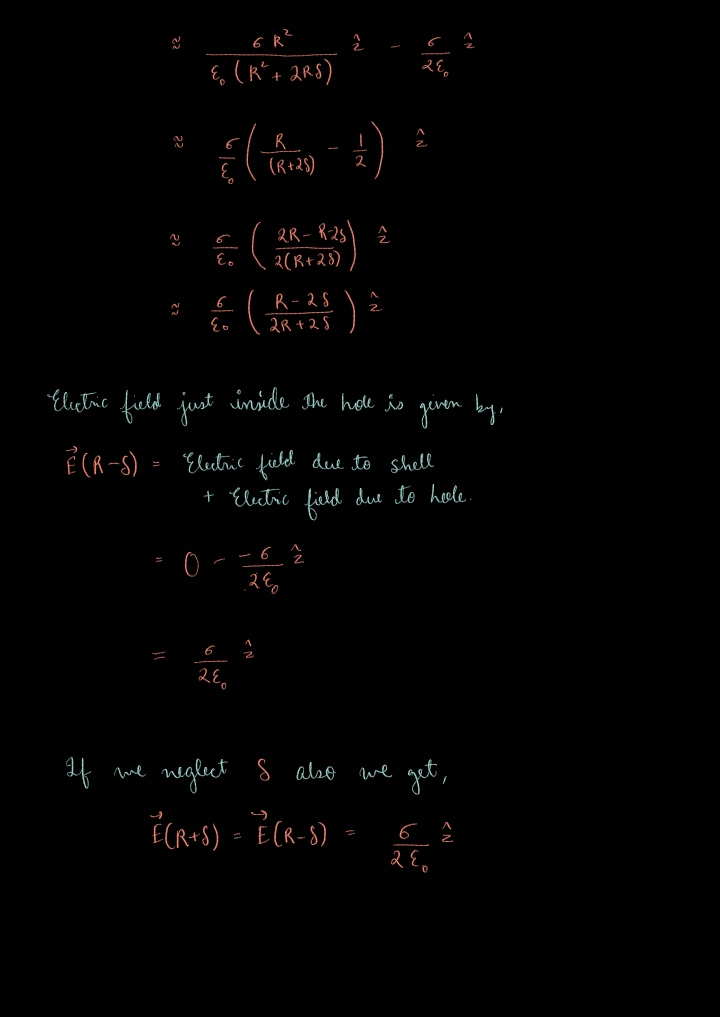 ≈ σ R² / ε₀ (R² + 2Rδ) ẑ - σ / 2ε₀ ẑ
≈ σ / ε₀ ( R / (R+2δ) - 1 / 2 ) ẑ
≈ σ / ε₀ ( 2R - R-2δ / 2(R+2δ) ) ẑ
≈ σ / ε₀ ( R - 2δ / 2R + 2δ ) ẑ
Electric field just inside the hole is given by,
E⃗ (R-δ) = Electric field due to shell
+ Electric field due to hole.
= 0 - -σ / 2ε₀ ẑ
= σ / 2ε₀ ẑ
If we neglect δ also we get,
E⃗ (R+δ) = E⃗ (R-δ) = σ / 2ε₀ ẑ